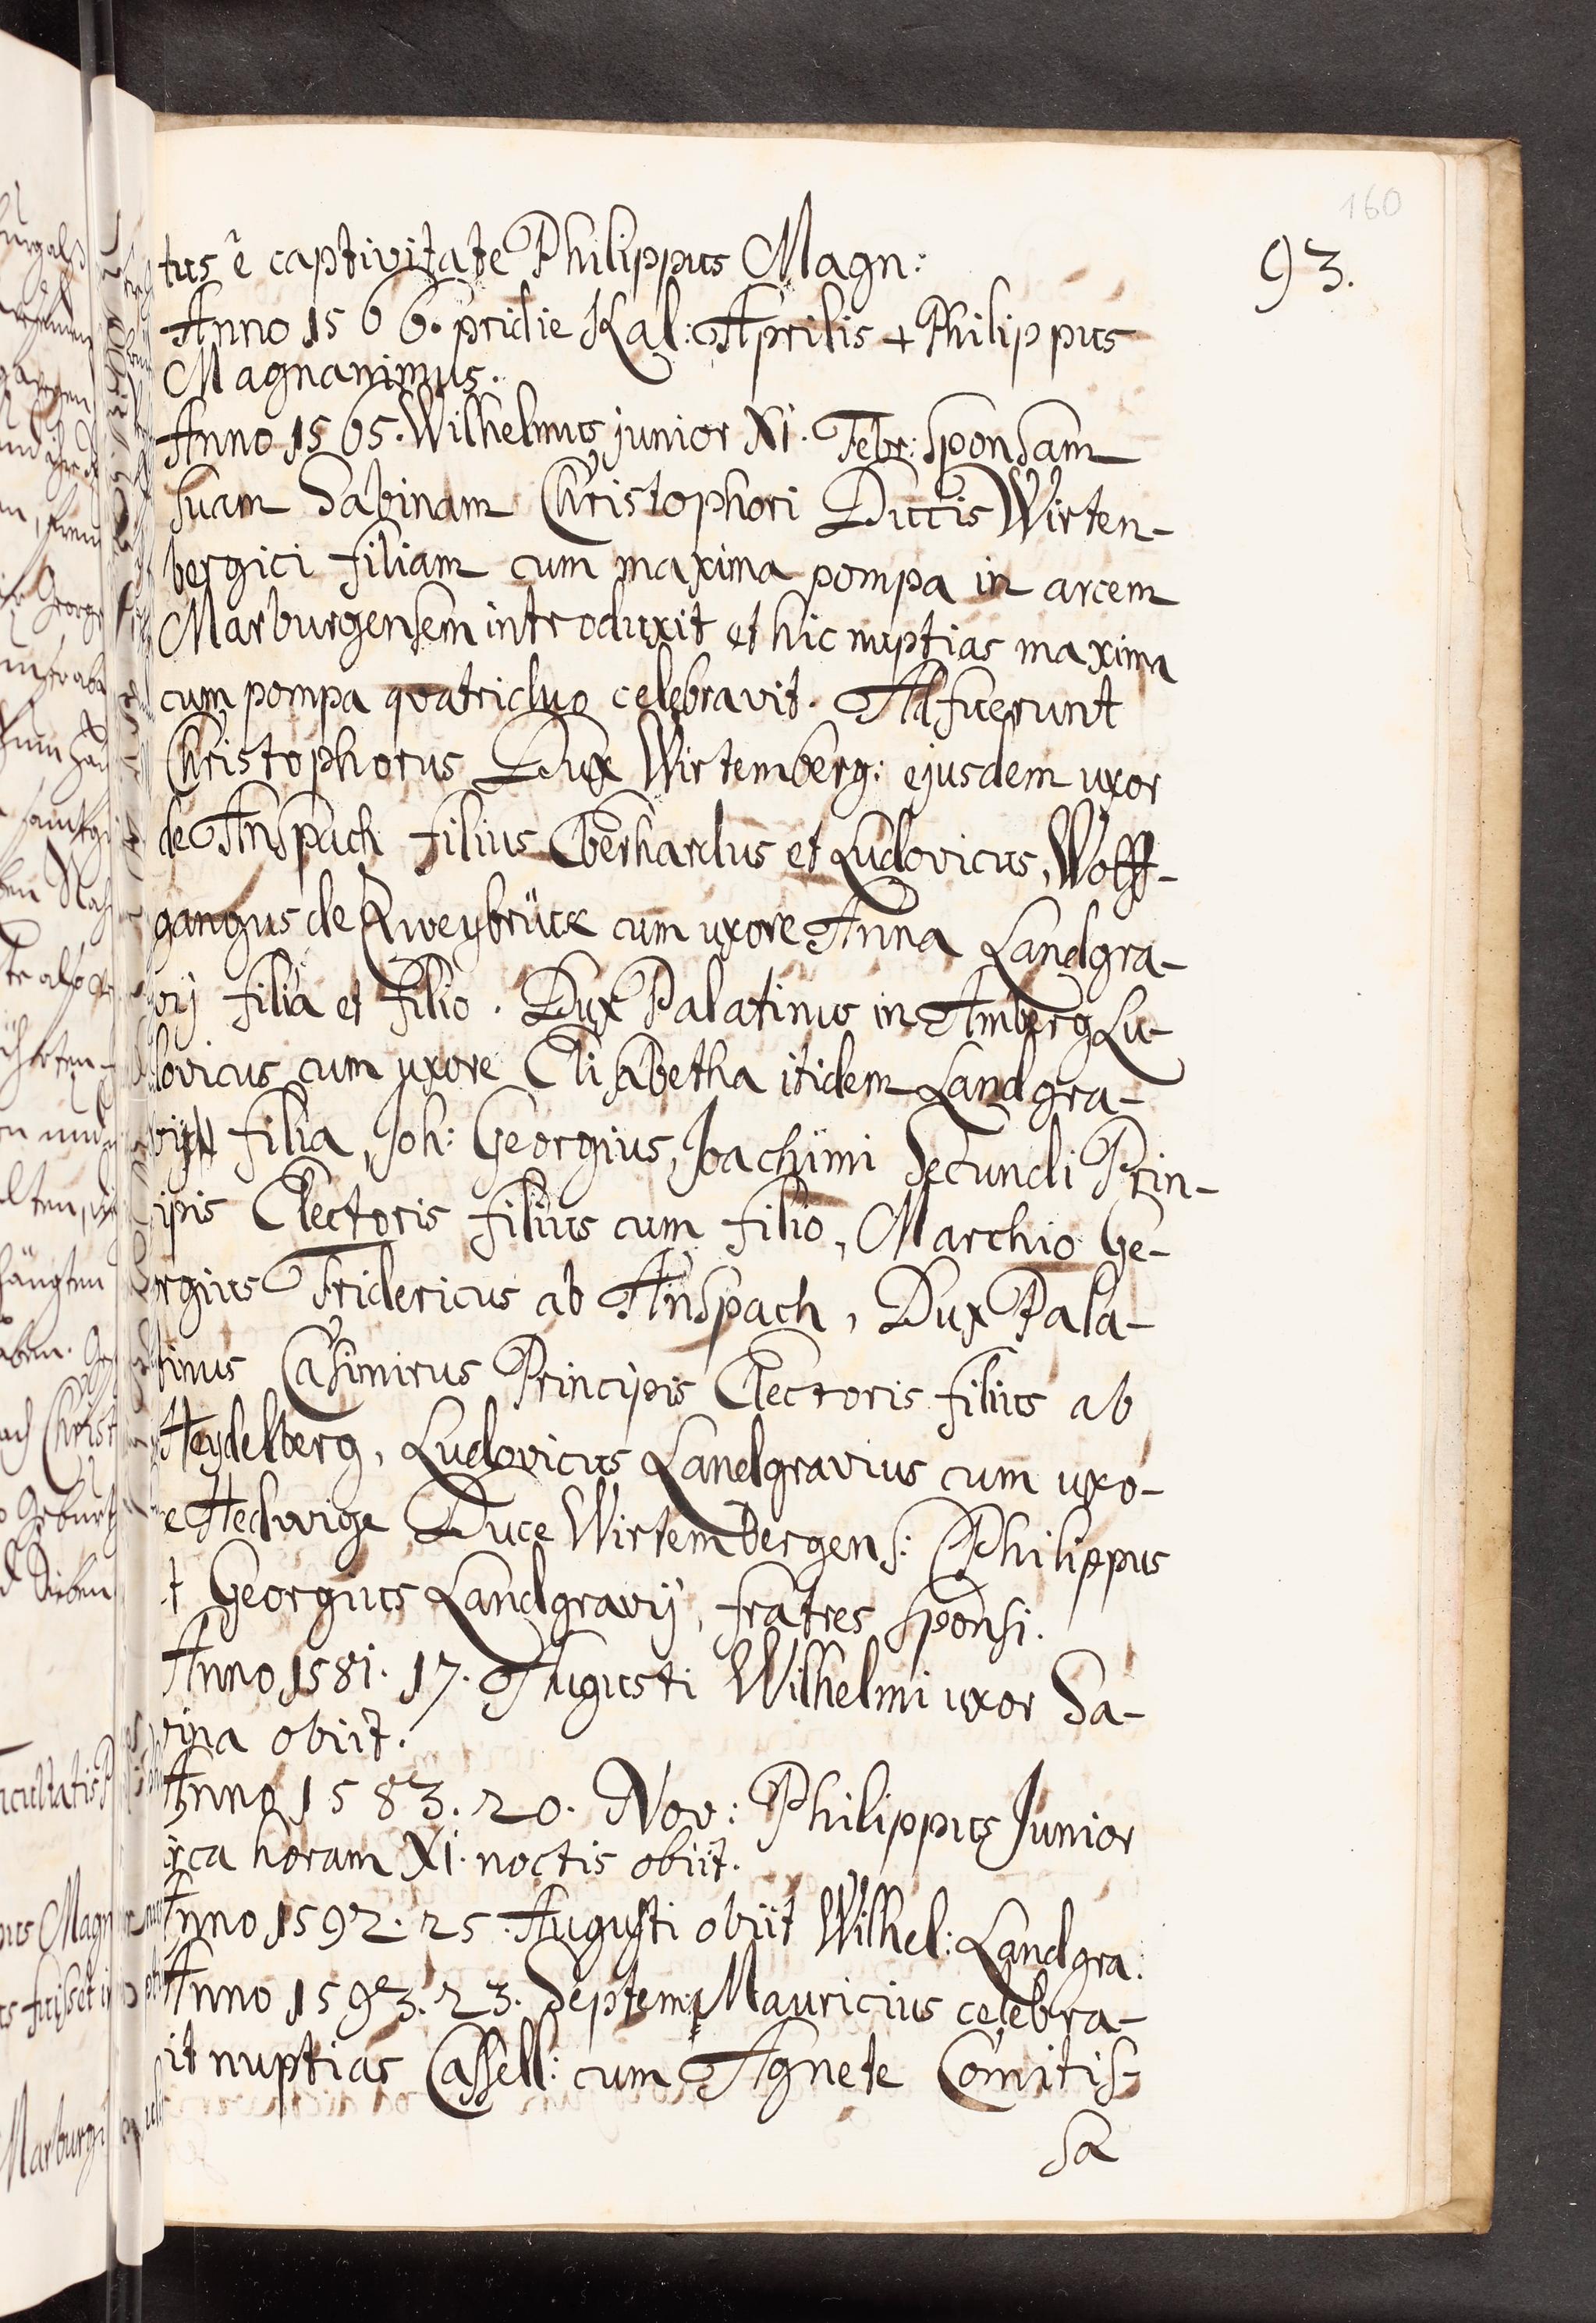 160
93.
tus è captivitate Philippus Magn:
Anno 1566. pridie Kal: Aprilis + Philippus
Magnanimus.
Anno 1565. Wilhelmus junior XI. Febr: sponsam
suam Sabinam Christophori Ducis Wirten-
bergici filiam cum maxima pompa in arcem
Marburgensem introduxit et hic nuptias maxima
cum pompa quatriduo celebravit. Adfuerunt
Christophorus Dux Wirtemberg: ejusdem uxor
de Anspach filius Eberhardus et Ludovicus, Wolff-
gangus de Zweybrück cum uxore Anna Landgra-
vij filia et filio. Dux Palatinus in Amberg Lu-
dovicus cum uxore Elisabetha itidem Landgra-
vij filia, Joh: Georgius, Joachimi Secundi Prin-
ipis Electoris filius cum filio, Marchio Ge-
rgius Fridericus ab Anspach, Dux Pala-
tinus Casimirus Principis Electoris filius ab
Heydelberg, Ludovicus Landgravius cum uxo-
e Hedwige Duce Wirtembergens: Philippus
t Georgius Landgravij, fratres sponsi.
Anno 1581. 17. Augusti Wilhelmi uxor Sa-
bina obiit.
Anno 1583. 20. Nov: Philippus Junior
irca horam XI. noctis obiit.
Anno 1592. 25. Augusti obiit Wilhel: Landgra:
Anno 1593. 23. Septem: Mauricius celebra-
it nuptias Cassell: cum Agnete Comitis-
sa